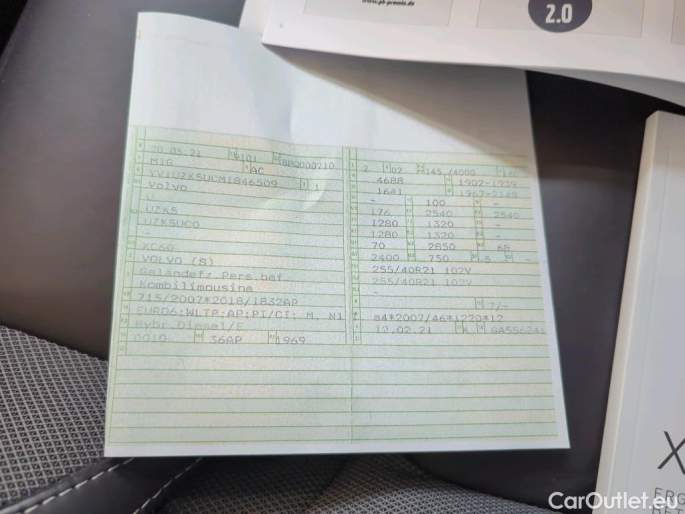 www.pb-praxis.de
2.0
20.05.21 9101
M1G AC
YV1UZK5UCM1846509 1
VOLVO
U
UZK5
UZK5UC0
-
XC60
VOLVO (S)
Geländefz.Pers.bef
Kombilimousine
715/2007*2018/1832AP
EURO6;WLTP;AP;PI/CI; M, N1
Hybr.Diesel/E
0010 36AP 1969
2 02 145 /4000
4688 1902-
1641
- 100 -
176 2540 2540
1280 1320 -
1280 1320 -
70 2850 68
2400 750 5 -
255/40R21 102V
255/40R21 102V
-
7/-
e4*2007/46*1220*12
12.02.21 K
X
CarOutlet.eu